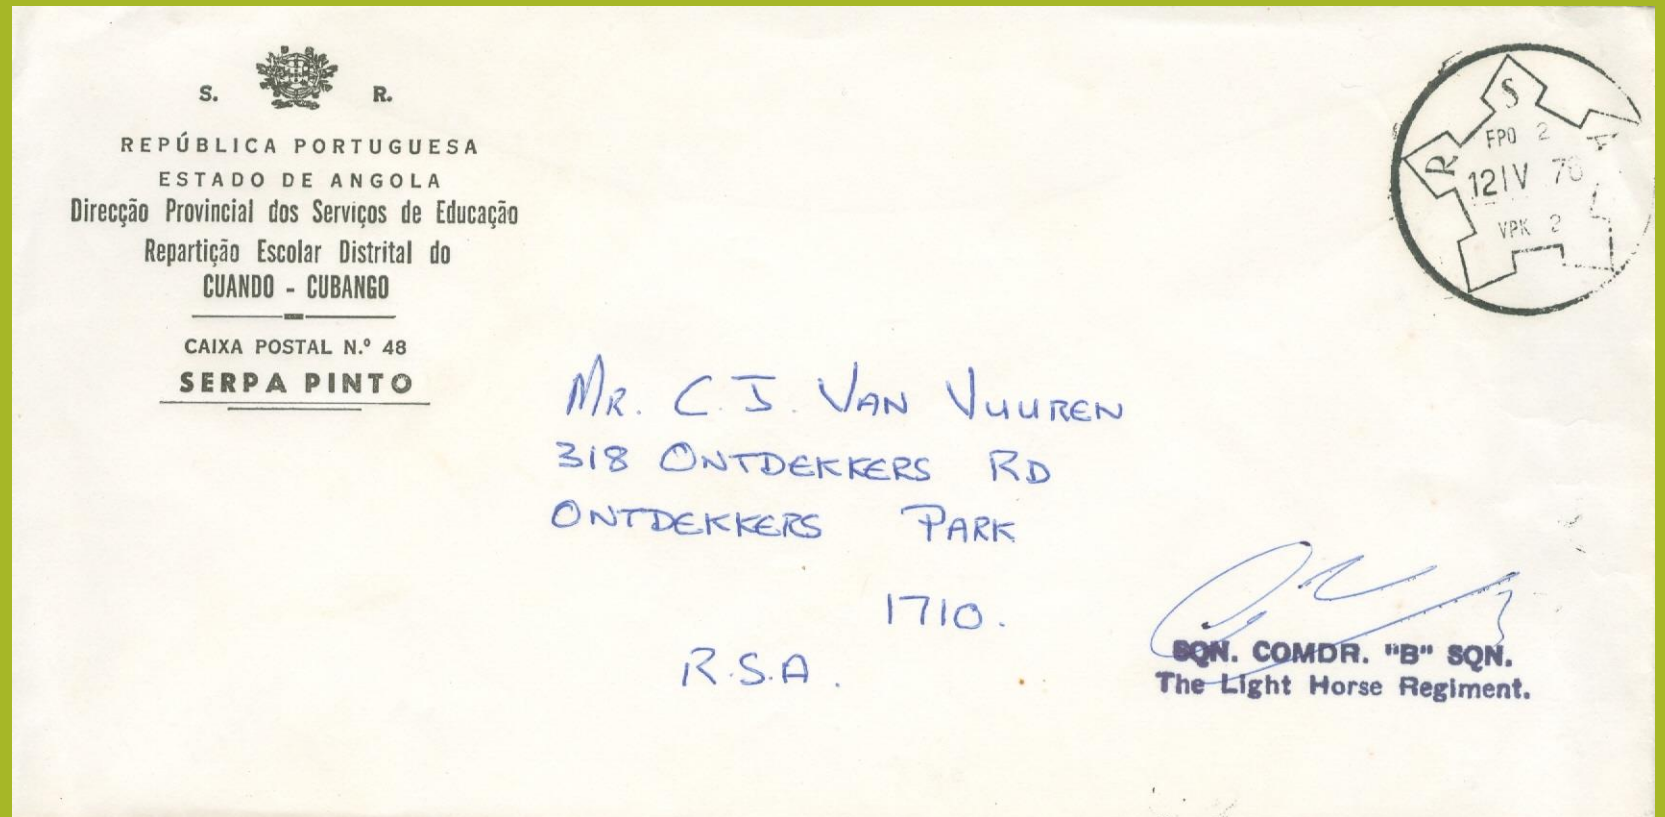 S. R.
REPÚBLICA PORTUGUESA
ESTADO DE ANGOLA
Direcção Provincial dos Serviços de Educação
Repartição Escolar Distrital do
CUANDO - CUBANGO
CAIXA POSTAL N.º 48
SERPA PINTO
R S A
FPO 2
12 IV 76
VPK 2
MR. C. J. VAN VUUREN
318 ONTDEKKERS RD
ONTDEKKERS PARK
1710.
R.S.A.
SQN. COMDR. "B" SQN.
The Light Horse Regiment.